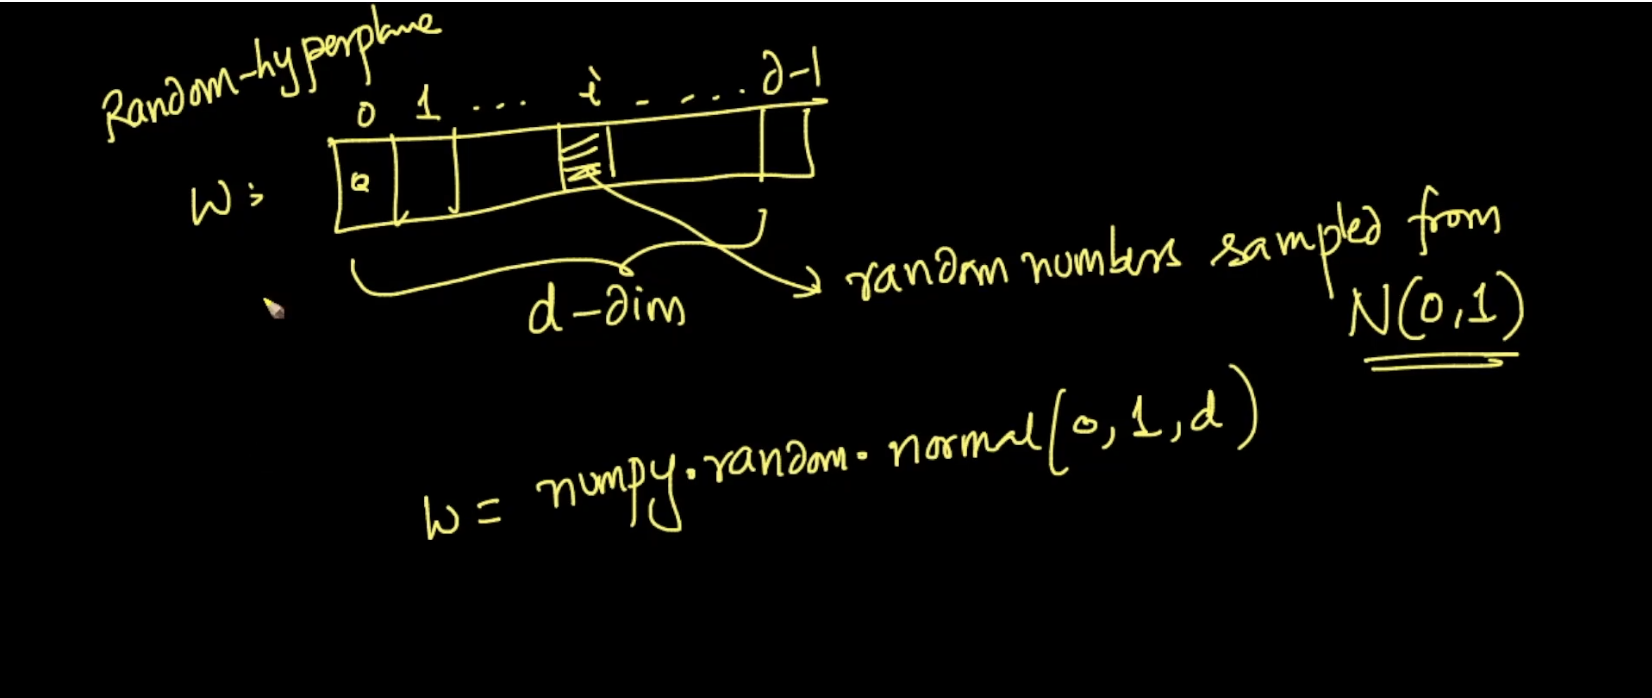 Random-hyperplane
0 1 ... i - - ... d-1
W:
d-dim
random numbers sampled from
N(0,1)
W = numpy.random.normal(0,1,d)